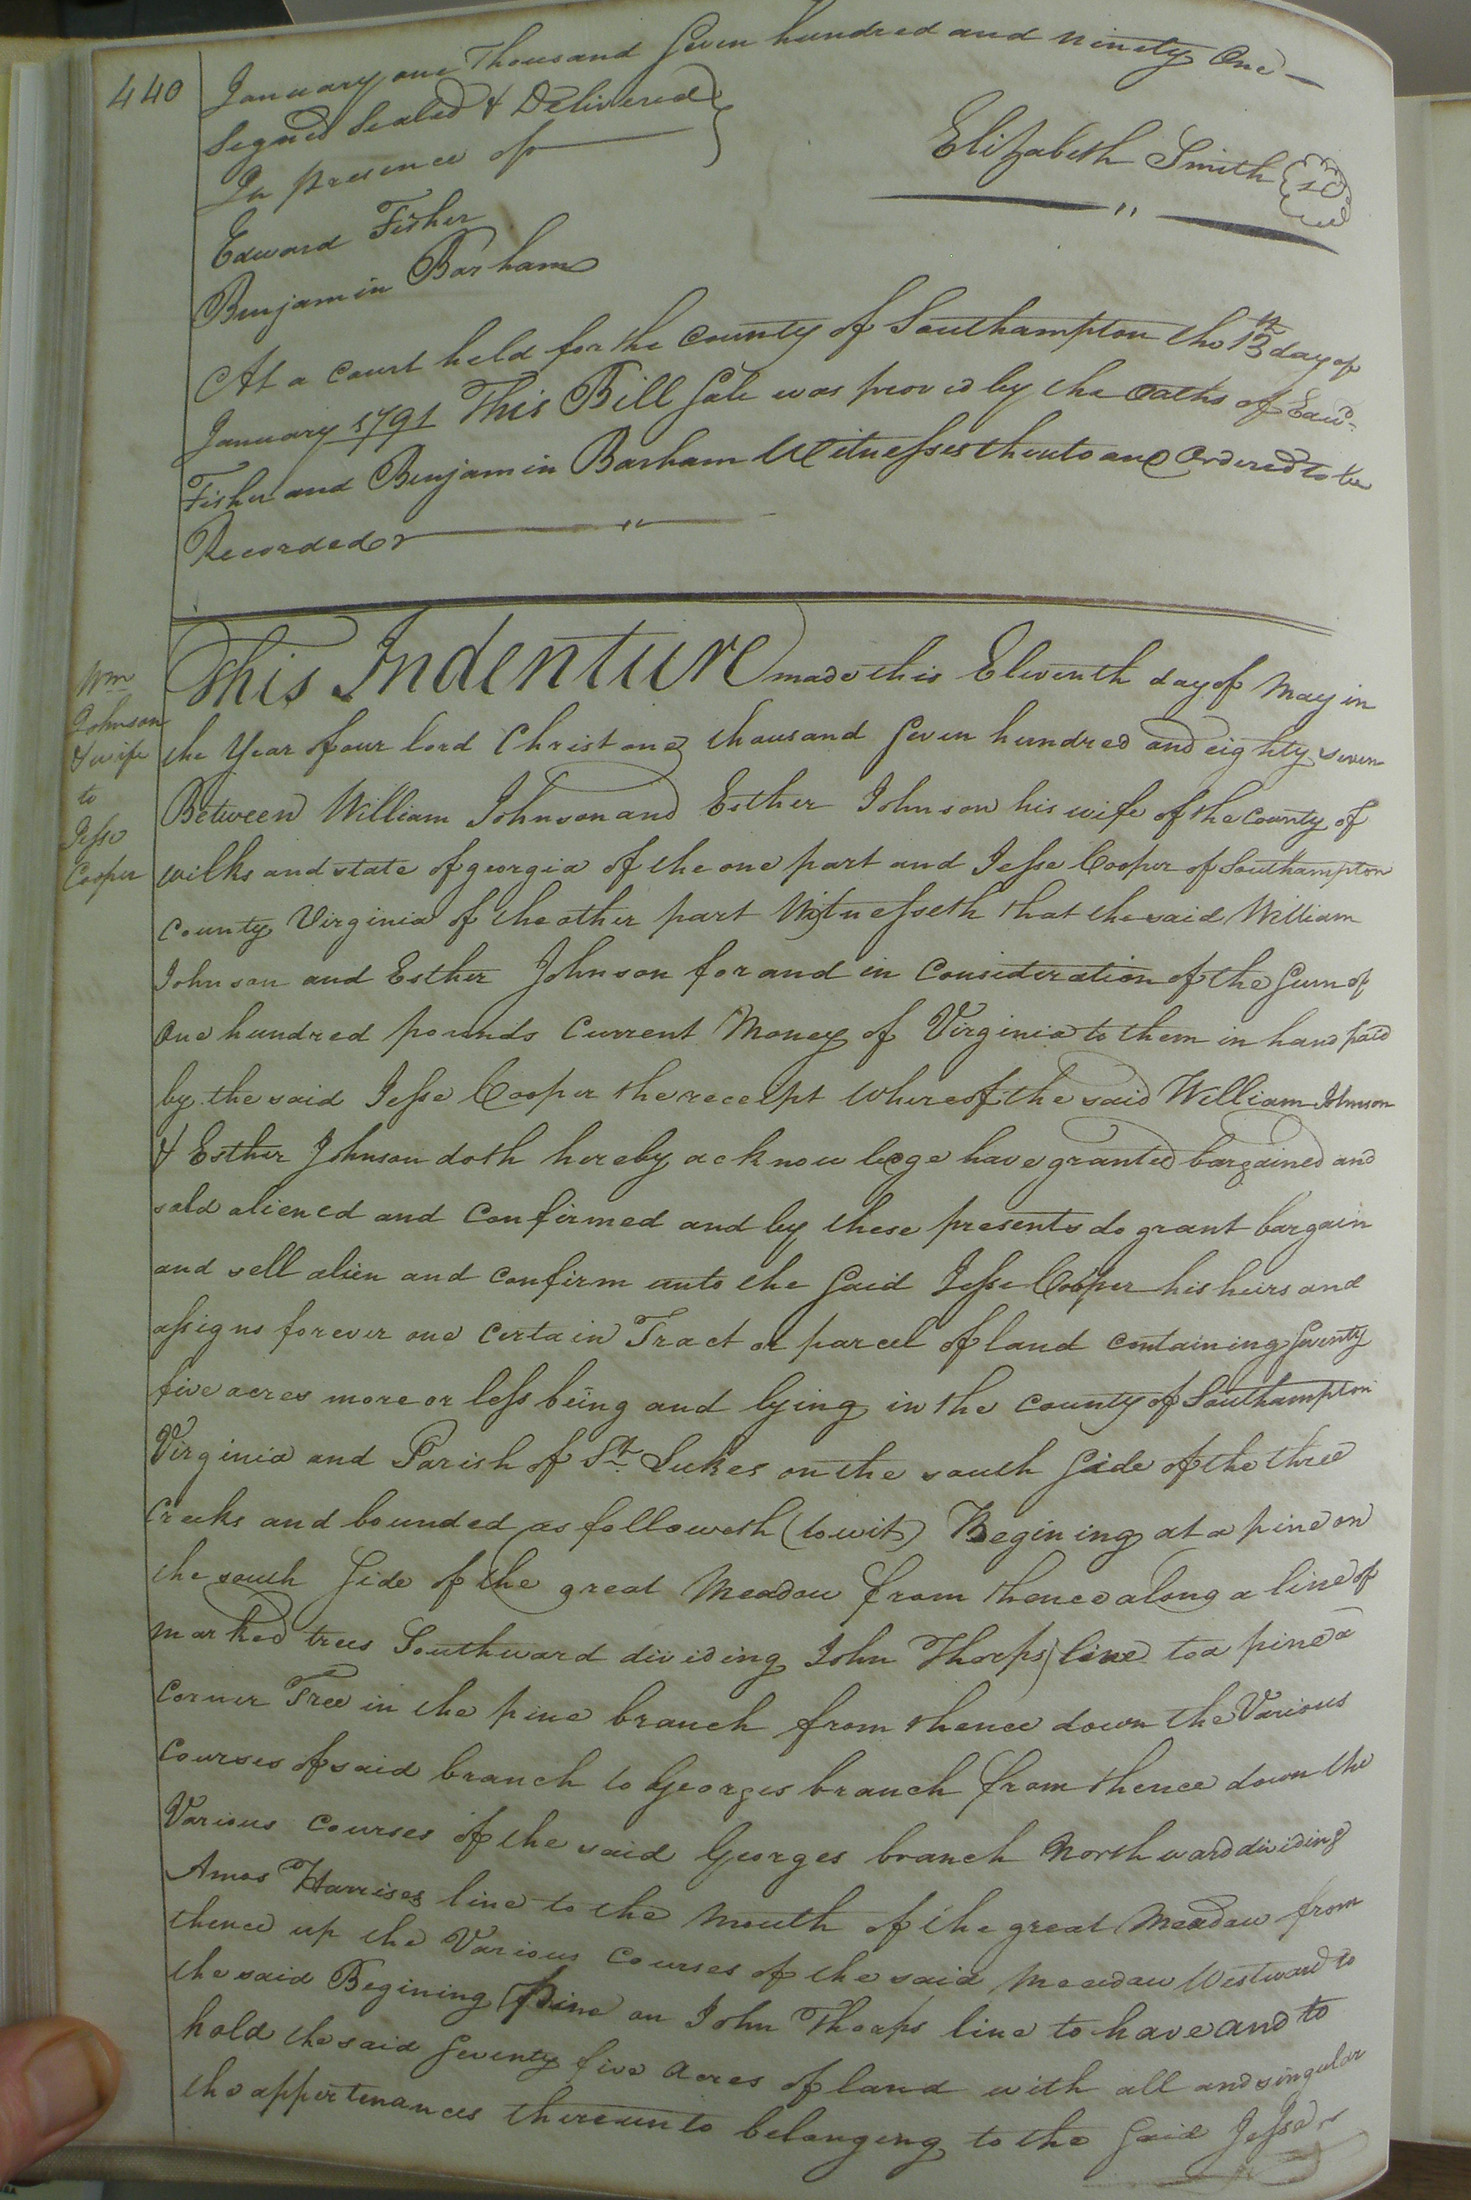 440
January one Thousand Seven hundred and ninety One
Signed Sealed & Delivered
In presence of
Elizabeth Smith
Edward Fisher
Benjamin Barham
At a Court held for the County of Southampton the 13th day of
January 1791 This Bill Sale was proved by the Oaths of Edwd
Fisher and Benjamin Barham Witnesses thereto and Ordered to be
Recorded
Wm
Johnson
& wife
to
Jesse
Cooper
This Indenture made this Eleventh day of May in
the Year of our lord Christ one thousand Seven hundred and eighty seven
Between William Johnson and Esther Johnson his wife of the County of
wilks and state of georgia of the one part and Jesse Cooper of Southampton
County Virginia of the other part Witnesseth that the said William
Johnson and Esther Johnson for and in Consideration of the Sum of
One hundred pounds Current Money of Virginia to them in hand paid
by the said Jesse Cooper the receipt Whereof the said William Johnson
& Esther Johnson doth hereby acknowledge have granted bargained and
sold aliened and Confirmed and by these presents do grant bargain
and sell alien and Confirm unto the Said Jesse Cooper his heirs and
assigns forever one Certain Tract or parcel of land Containing Seventy
five acres more or less being and lying in the County of Southampton
Virginia and Parish of St. Lukes on the south Side of the three
Creeks and bounded as followeth (to wit) Begining at a pine on
the south Side of the great Meadow from thence along a line of
marked trees Southward dividing John Thorps line to a pine a
Corner Tree in the pine branch from thence down the Various
Courses of said branch to Georges branch from thence down the
Various Courses of the said Georges branch Northward dividing
Amos Harrises line to the Mouth of the great Meadow from
thence up the Various Courses of the said Meadow Westward to
the said Begining Pine on John Thorps line to have and to
hold the said Seventy five Acres of land with all and singular
the appertenances thereunto belonging to the Said Jesse